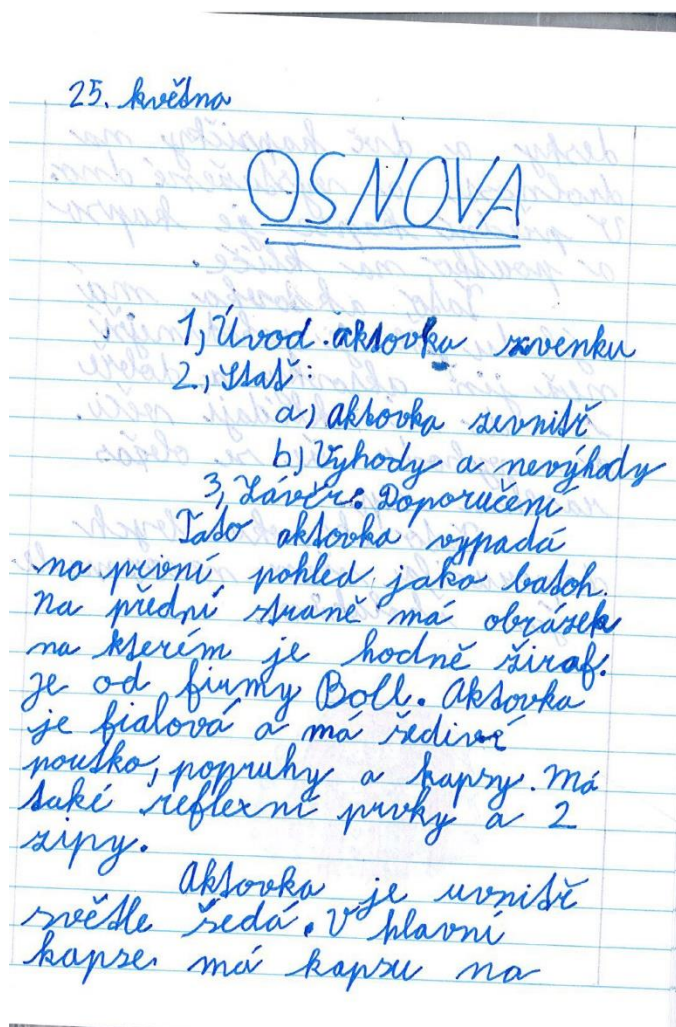 25. května
OSNOVA
1, Úvod: aktovka zvenku
2, Stať:
a) aktovka zevnitř
b) Výhody a nevýhody
3, Závěr: Doporučení
Tato aktovka vypadá
na první pohled jako batoh.
Na přední straně má obrázek
na kterém je hodně žiraf.
Je od firmy Boll. Aktovka
je fialová a má šedivé
poutko, popruhy a kapsy. Má
také reflexní prvky a 2
zipy.
Aktovka je uvnitř
světle šedá. V hlavní
kapse má kapsu na